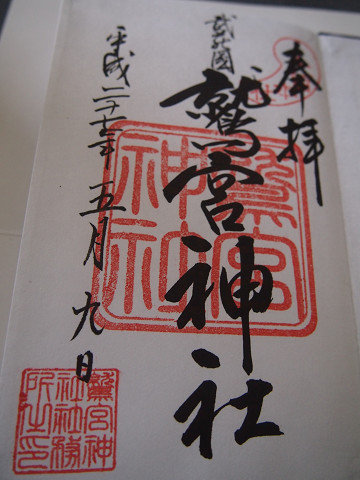 奉拝
武蔵國
鷲宮神社
平成二十七年五月九日
鷲宮
神社
鷲宮神
社社務
所之印